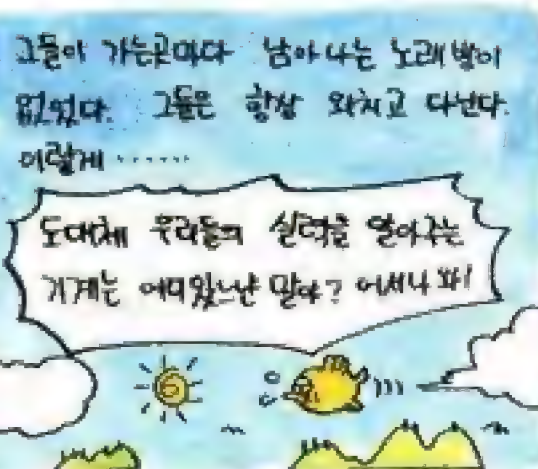 그들이 가는곳마다 남아나는 노래방이
없었다. 그들은 항상 외치고 다닌다.
이렇게......
도대체 우리들의 실력을 알아주는
기계는 어디있느냔 말야? 어서나 와!